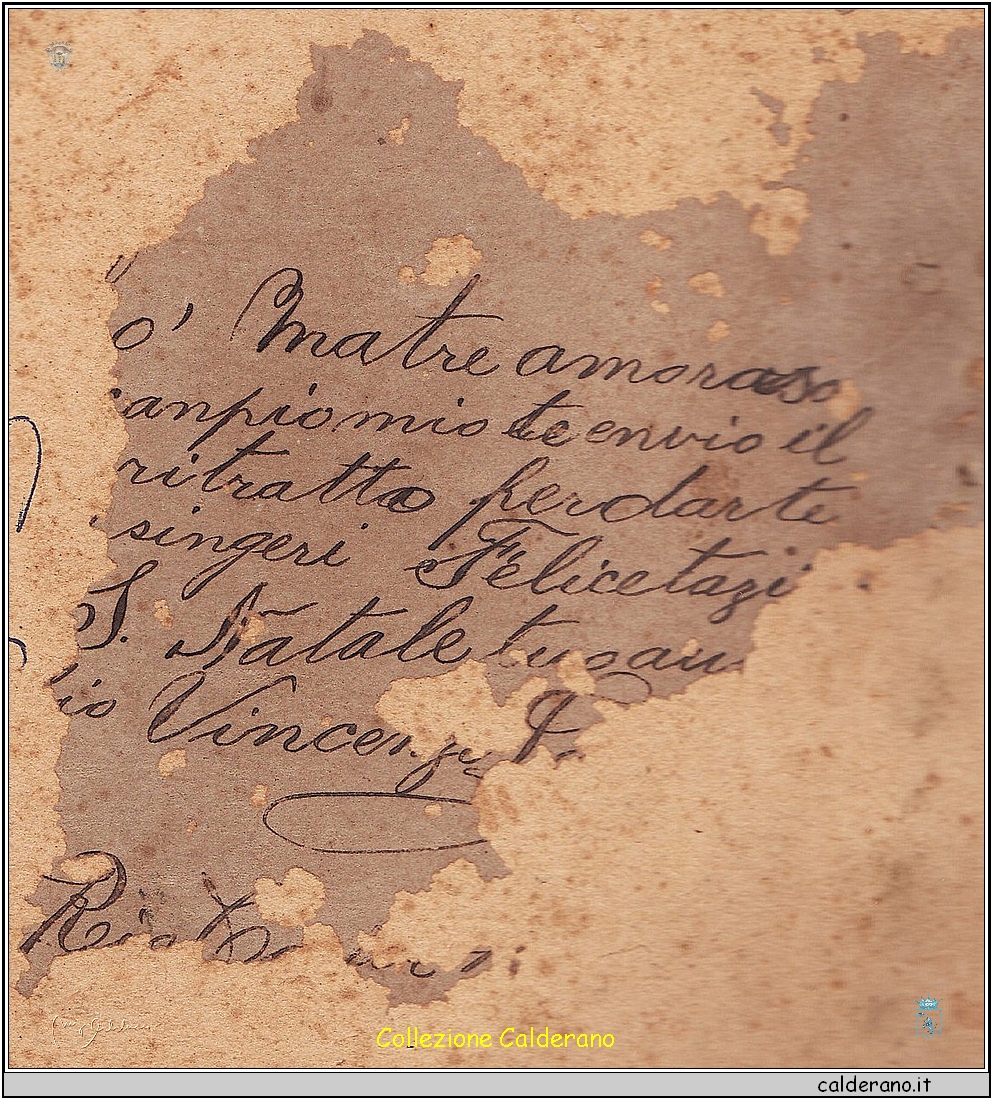 o' Matre amoraso
anpio mio te envio il
ritratto per darte
singeri Felicetazi
S. Natale tuo
io Vincenzo
Rio
Collezione Calderano
calderano.it